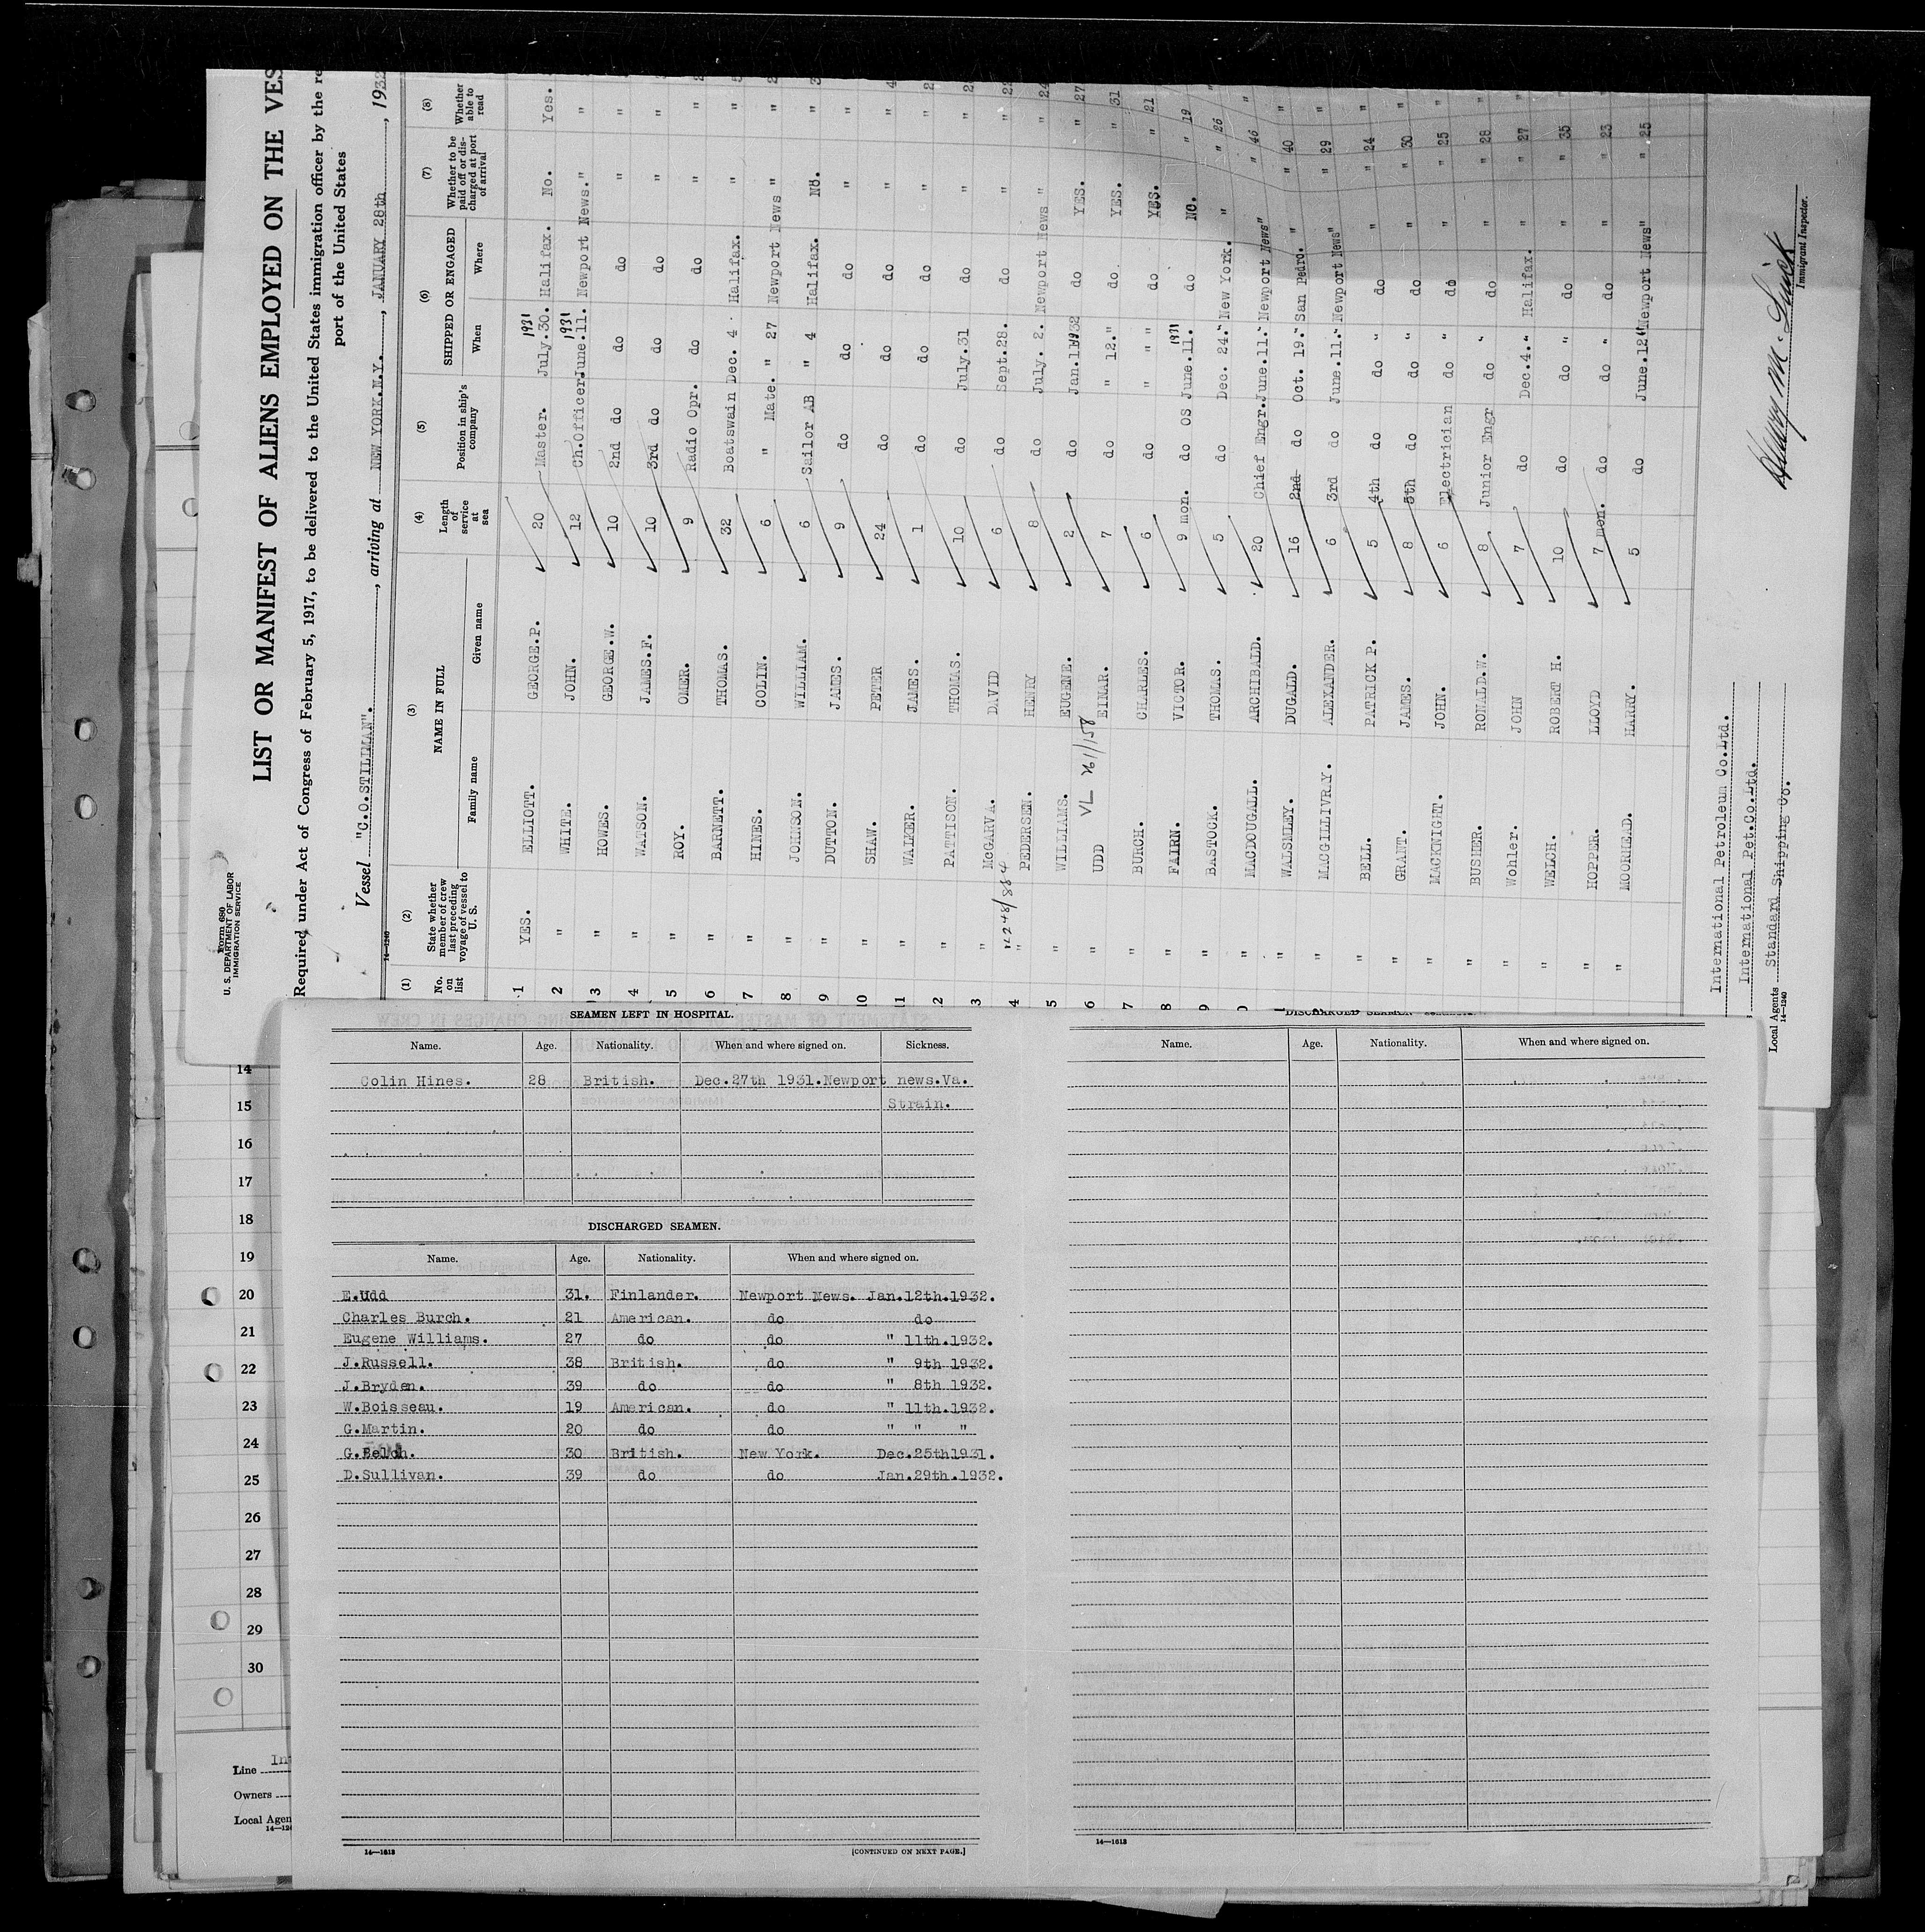 Form 680
U. S. DEPARTMENT OF LABOR
IMMIGRATION SERVICE
LIST OR MANIFEST OF ALIENS EMPLOYED ON THE VES
Required under Act of Congress of February 5, 1917, to be delivered to the United States immigration officer by the re
port of the United States
Vessel "C.O.STILLMAN"., arriving at NEW YORK.N.Y., JANUARY 28th, 1932
14—1240
(1) (2) (3) (4) (5) (6) (7) (8)
No. on list State whether member of crew last preceding voyage of vessel to U. S. NAME IN FULL Length of service at sea Position in ship's company SHIPPED OR ENGAGED Whether to be paid off or discharged at port of arrival Whether able to read
Family name Given name When Where
1 YES. ELLIOTT. GEORGE.P. 20 Master. 1931 July.30. Halifax. No. Yes.
2 " WHITE. JOHN. 12 Ch.Officer. 1931 June.11. Newport News. " "
3 " HOWES. GEORGE.W. 10 2nd do do do " "
4 " WATSON. JAMES.F. 10 3rd do do do " "
5 " ROY. OMER. 9 Radio Opr. do do " "
6 " BARNETT. THOMAS. 32 Boatswain Dec. 4 Halifax. " "
7 " HINES. COLIN. 6 " Mate. " 27 Newport News " "
8 " JOHNSON. WILLIAM. 6 Sailor AB " 4 Halifax. No. "
9 " DUTTON. JAMES. 9 do do do " "
10 " SHAW. PETER 24 do do do " "
11 " WALKER. JAMES. 1 do do do " "
2 " PATTISON. THOMAS. 10 do July.31 do " "
3 " McGARVA. DAVID 6 do Sept.28. do " "
4 " PEDERSEN. HENRY 8 do July. 2. Newport News " " 24
5 " WILLIAMS. EUGENE. 2 do Jan.11 1932 do YES. " 27
6 " UDD EINAR. 7 do " 12." do YES. " 31
7 " BURCH. CHARLES. 6 do " " do YES. " 21
8 " FAIRN. VICTOR. 9 mon. do OS 1931 June.11. do NO. " 19
9 " BASTOCK. THOMAS. 5 do Dec. 24." New York. " " 26
0 " MACDOUGALL. ARCHIBALD. 20 Chief Engr. June.11." Newport News" " 46
" WALSMLEY. DUGALD. 16 2nd do Oct. 19." San Pedro. " " 40
" MACGILLIVRY. ALEXANDER. 6 3rd do June.11." Newport News" " 29
" BELL. PATRICK P. 5 4th do do " do " " 24
" GRANT. JAMES. 8 5th do do " do " " 30
" MACKNIGHT. JOHN. 6 Electrician do " do " " 25
" BUSHER. RONALD.W. 8 Junior Engr do " do " " 28
" Wohler. JOHN 7 do Dec.4." Halifax. " " 27
" WELCH. ROBERT H. 10 do do " do " " 35
" HOPPER. LLOYD 7 mon. do do " do " " 23
" MOORHEAD. HARRY. 5 do June.12" Newport News" " 25
International Petroleum Co.Ltd.
International Pet.Co.Ltd.
Local Agents Standard Shipping Co.
14—1240
Immigrant Inspector.
14
15
16
17
18
19
20
21
22
23
24
25
26
27
28
29
30
Line In
Owners
Local Agen
SEAMEN LEFT IN HOSPITAL.
Name. Age. Nationality. When and where signed on. Sickness.
Colin Hines. 28 British. Dec.27th 1931.Newport news.Va.
Strain.
DISCHARGED SEAMEN.
Name. Age. Nationality. When and where signed on.
E.Udd 31. Finlander. Newport News. Jan.12th.1932.
Charles Burch. 21 American. do do
Eugene Williams. 27 do do " 11th.1932.
J.Russell. 38 British. do " 9th 1932.
J.Bryden. 39 do do " 8th 1932.
W.Boisseau. 19 American. do " 11th.1932.
G.Martin. 20 do do " " "
G.Belch. 30 British. New York. Dec.25th1931.
D.Sullivan. 39 do do Jan.29th.1932.
14—1613
[CONTINUED ON NEXT PAGE.]
DISCHARGED SEAMEN
Name. Age. Nationality. When and where signed on.
14—1613